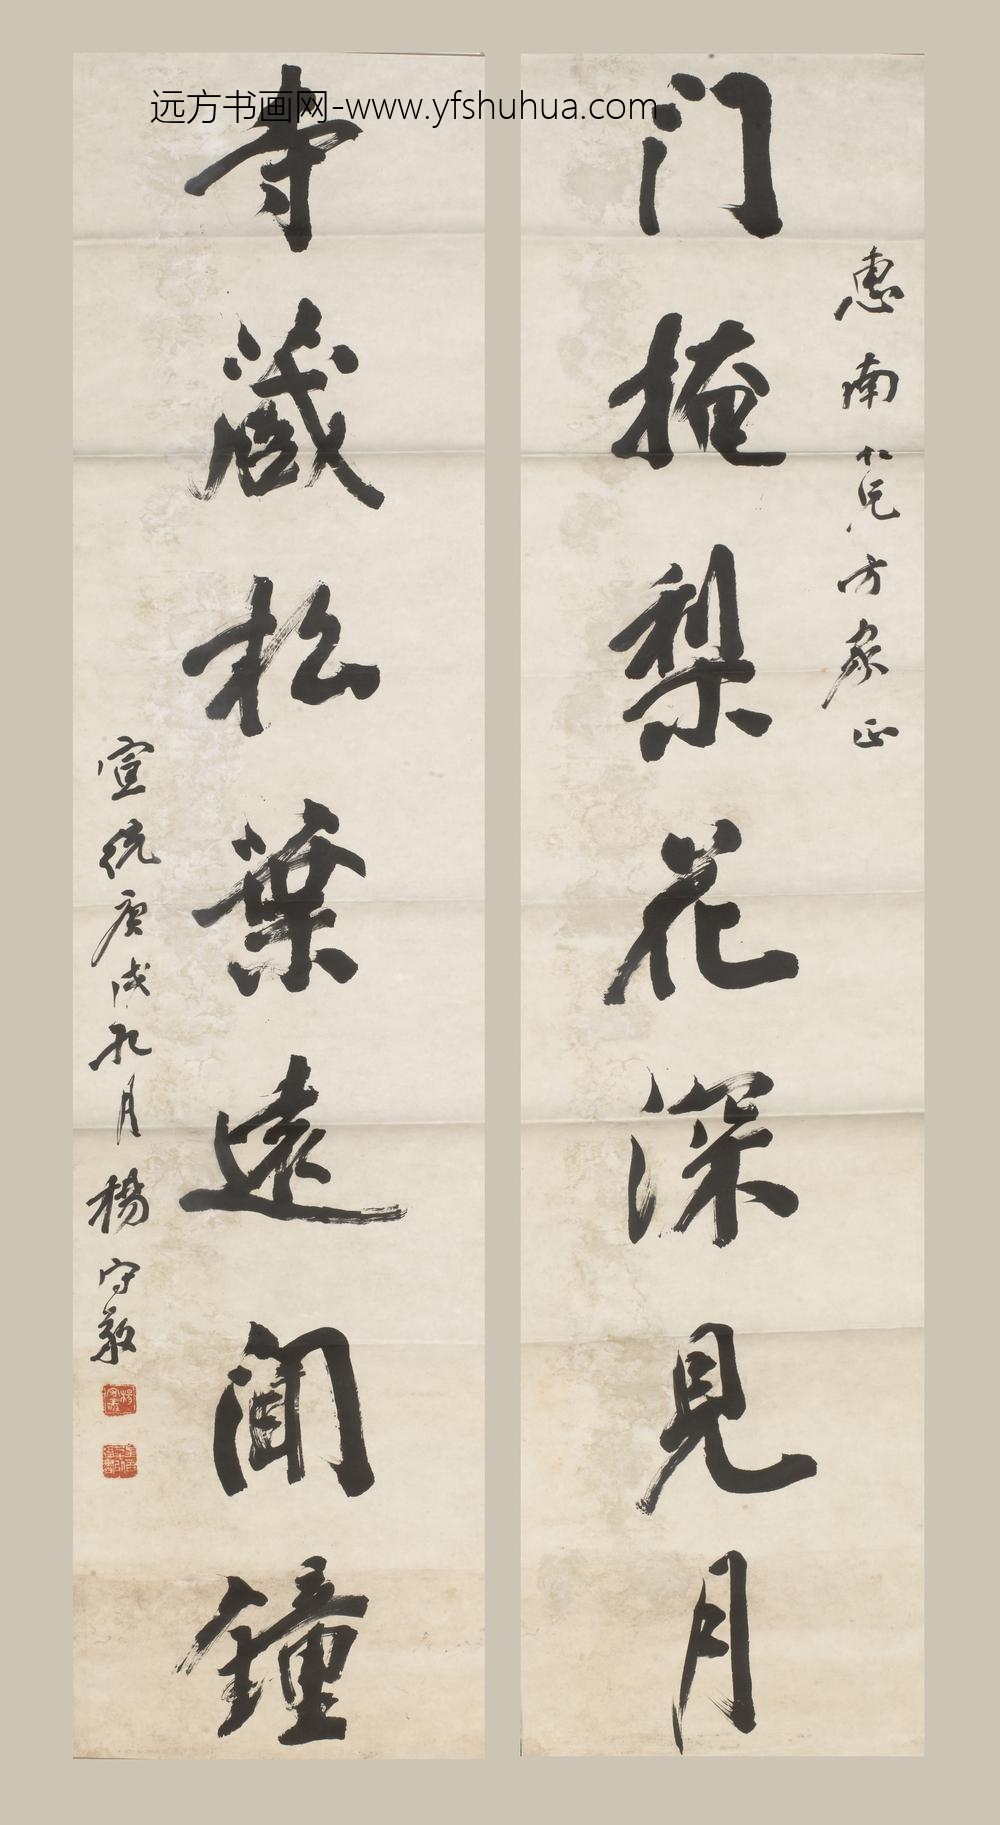 远方书画网-www.yfshuhua.com
惠南仁兄方家正
门掩梨花深見月
寺藏松葉遠聞鐘
宣統庚戌九月楊守敬